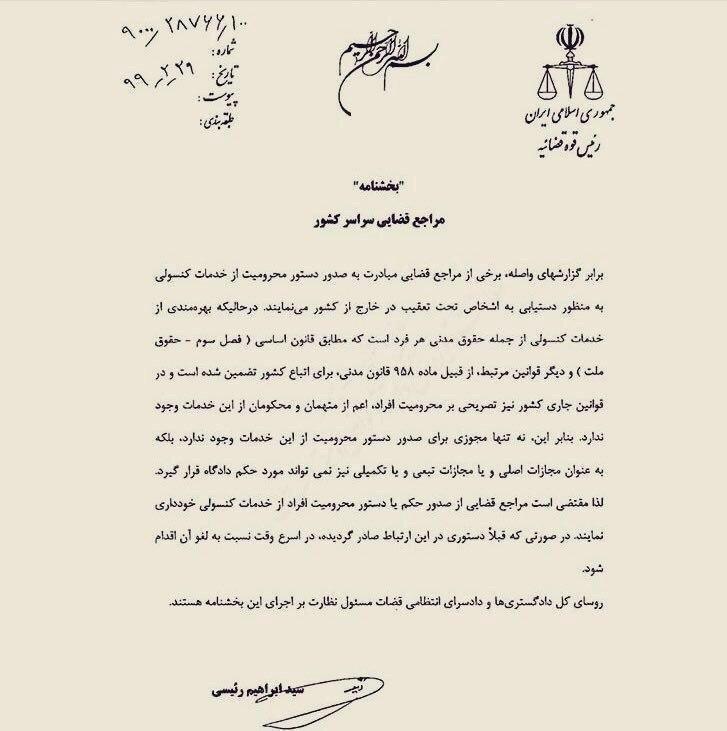 ۹۰۰۰/۲۸۷۶۶/۱۰۰
شماره :
تاریخ : ۹۹_۲_۲۹
پیوست :
طبقه بندی :
بسم الله الرحمن الرحیم
جمهوری اسلامی ایران
رئیس قوه قضائیه
"بخشنامه"
مراجع قضایی سراسر کشور
برابر گزارشهای واصله، برخی از مراجع قضایی مبادرت به صدور دستور محرومیت از خدمات کنسولی
به منظور دستیابی به اشخاص تحت تعقیب در خارج از کشور می‌نمایند. درحالیکه بهره‌مندی از
خدمات کنسولی از جمله حقوق مدنی هر فرد است که مطابق قانون اساسی ( فصل سوم - حقوق
ملت ) و دیگر قوانین مرتبط، از قبیل ماده ۹۵۸ قانون مدنی، برای اتباع کشور تضمین شده است و در
قوانین جاری کشور نیز تصریحی بر محرومیت افراد، اعم از متهمان و محکومان از این خدمات وجود
ندارد. بنابر این، نه تنها مجوزی برای صدور دستور محرومیت از این خدمات وجود ندارد، بلکه
به عنوان مجازات اصلی و یا مجازات تبعی و یا تکمیلی نیز نمی تواند مورد حکم دادگاه قرار گیرد.
لذا مقتضی است مراجع قضایی از صدور حکم یا دستور محرومیت افراد از خدمات کنسولی خودداری
نمایند. در صورتی که قبلاً دستوری در این ارتباط صادر گردیده، در اسرع وقت نسبت به لغو آن اقدام
شود.
روسای کل دادگستری‌ها و دادسرای انتظامی قضات مسئول نظارت بر اجرای این بخشنامه هستند.
سید ابراهیم رئیسی